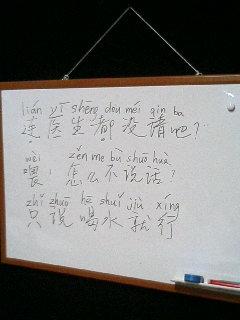 lián yī shēng dou méi qin ba
连医生都没请吧?
wèi zěn me bù shuō huà
喂,怎么不说话?
zhǐ zhuō hē shuǐ jiù xíng
只说喝水就行